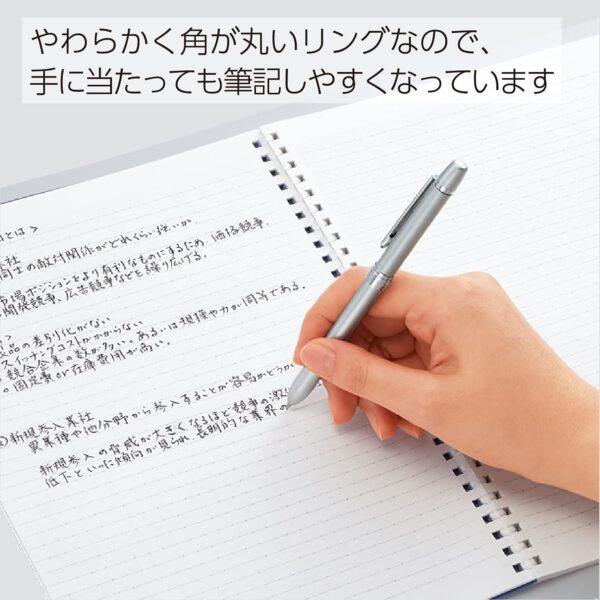 やわらかく角が丸いリングなので、
手に当たっても筆記しやすくなっています
とは>
同士の敵対関係がどれくらい強いか
市場ポジションをより有利なものにするため、価格競争、
開発競争、広告競争などを繰り広げる。
製品の差別化がない
スイッチングコストがかからない
競合企業の数が多い。あるいは規模や力が同等である。
。固定費or在庫費用が高い。
新規参入業社
異業種や他分野から参入することが容易かどうか
新規参入の脅威が大きくなるほど競争の激
低下といった傾向が見られ、長期的な業界の